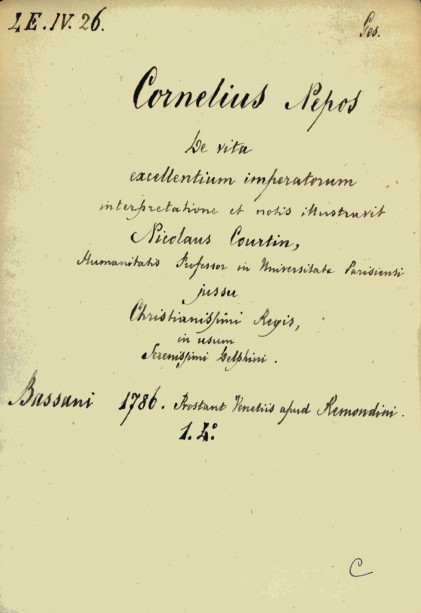 LE.IV.26.
Ges.
Cornelius Nepos
De vita
excellentium imperatorum
interpretatione et notis illustravit
Nicolaus Courtin,
Humanitatis Professor in Universitate Parisiensi
jussu
Christianissimi Regis,
in usum
Serenissimi Delphini.
Bassani 1786. Prostant Venetiis apud Remondini.
1. 4º
C